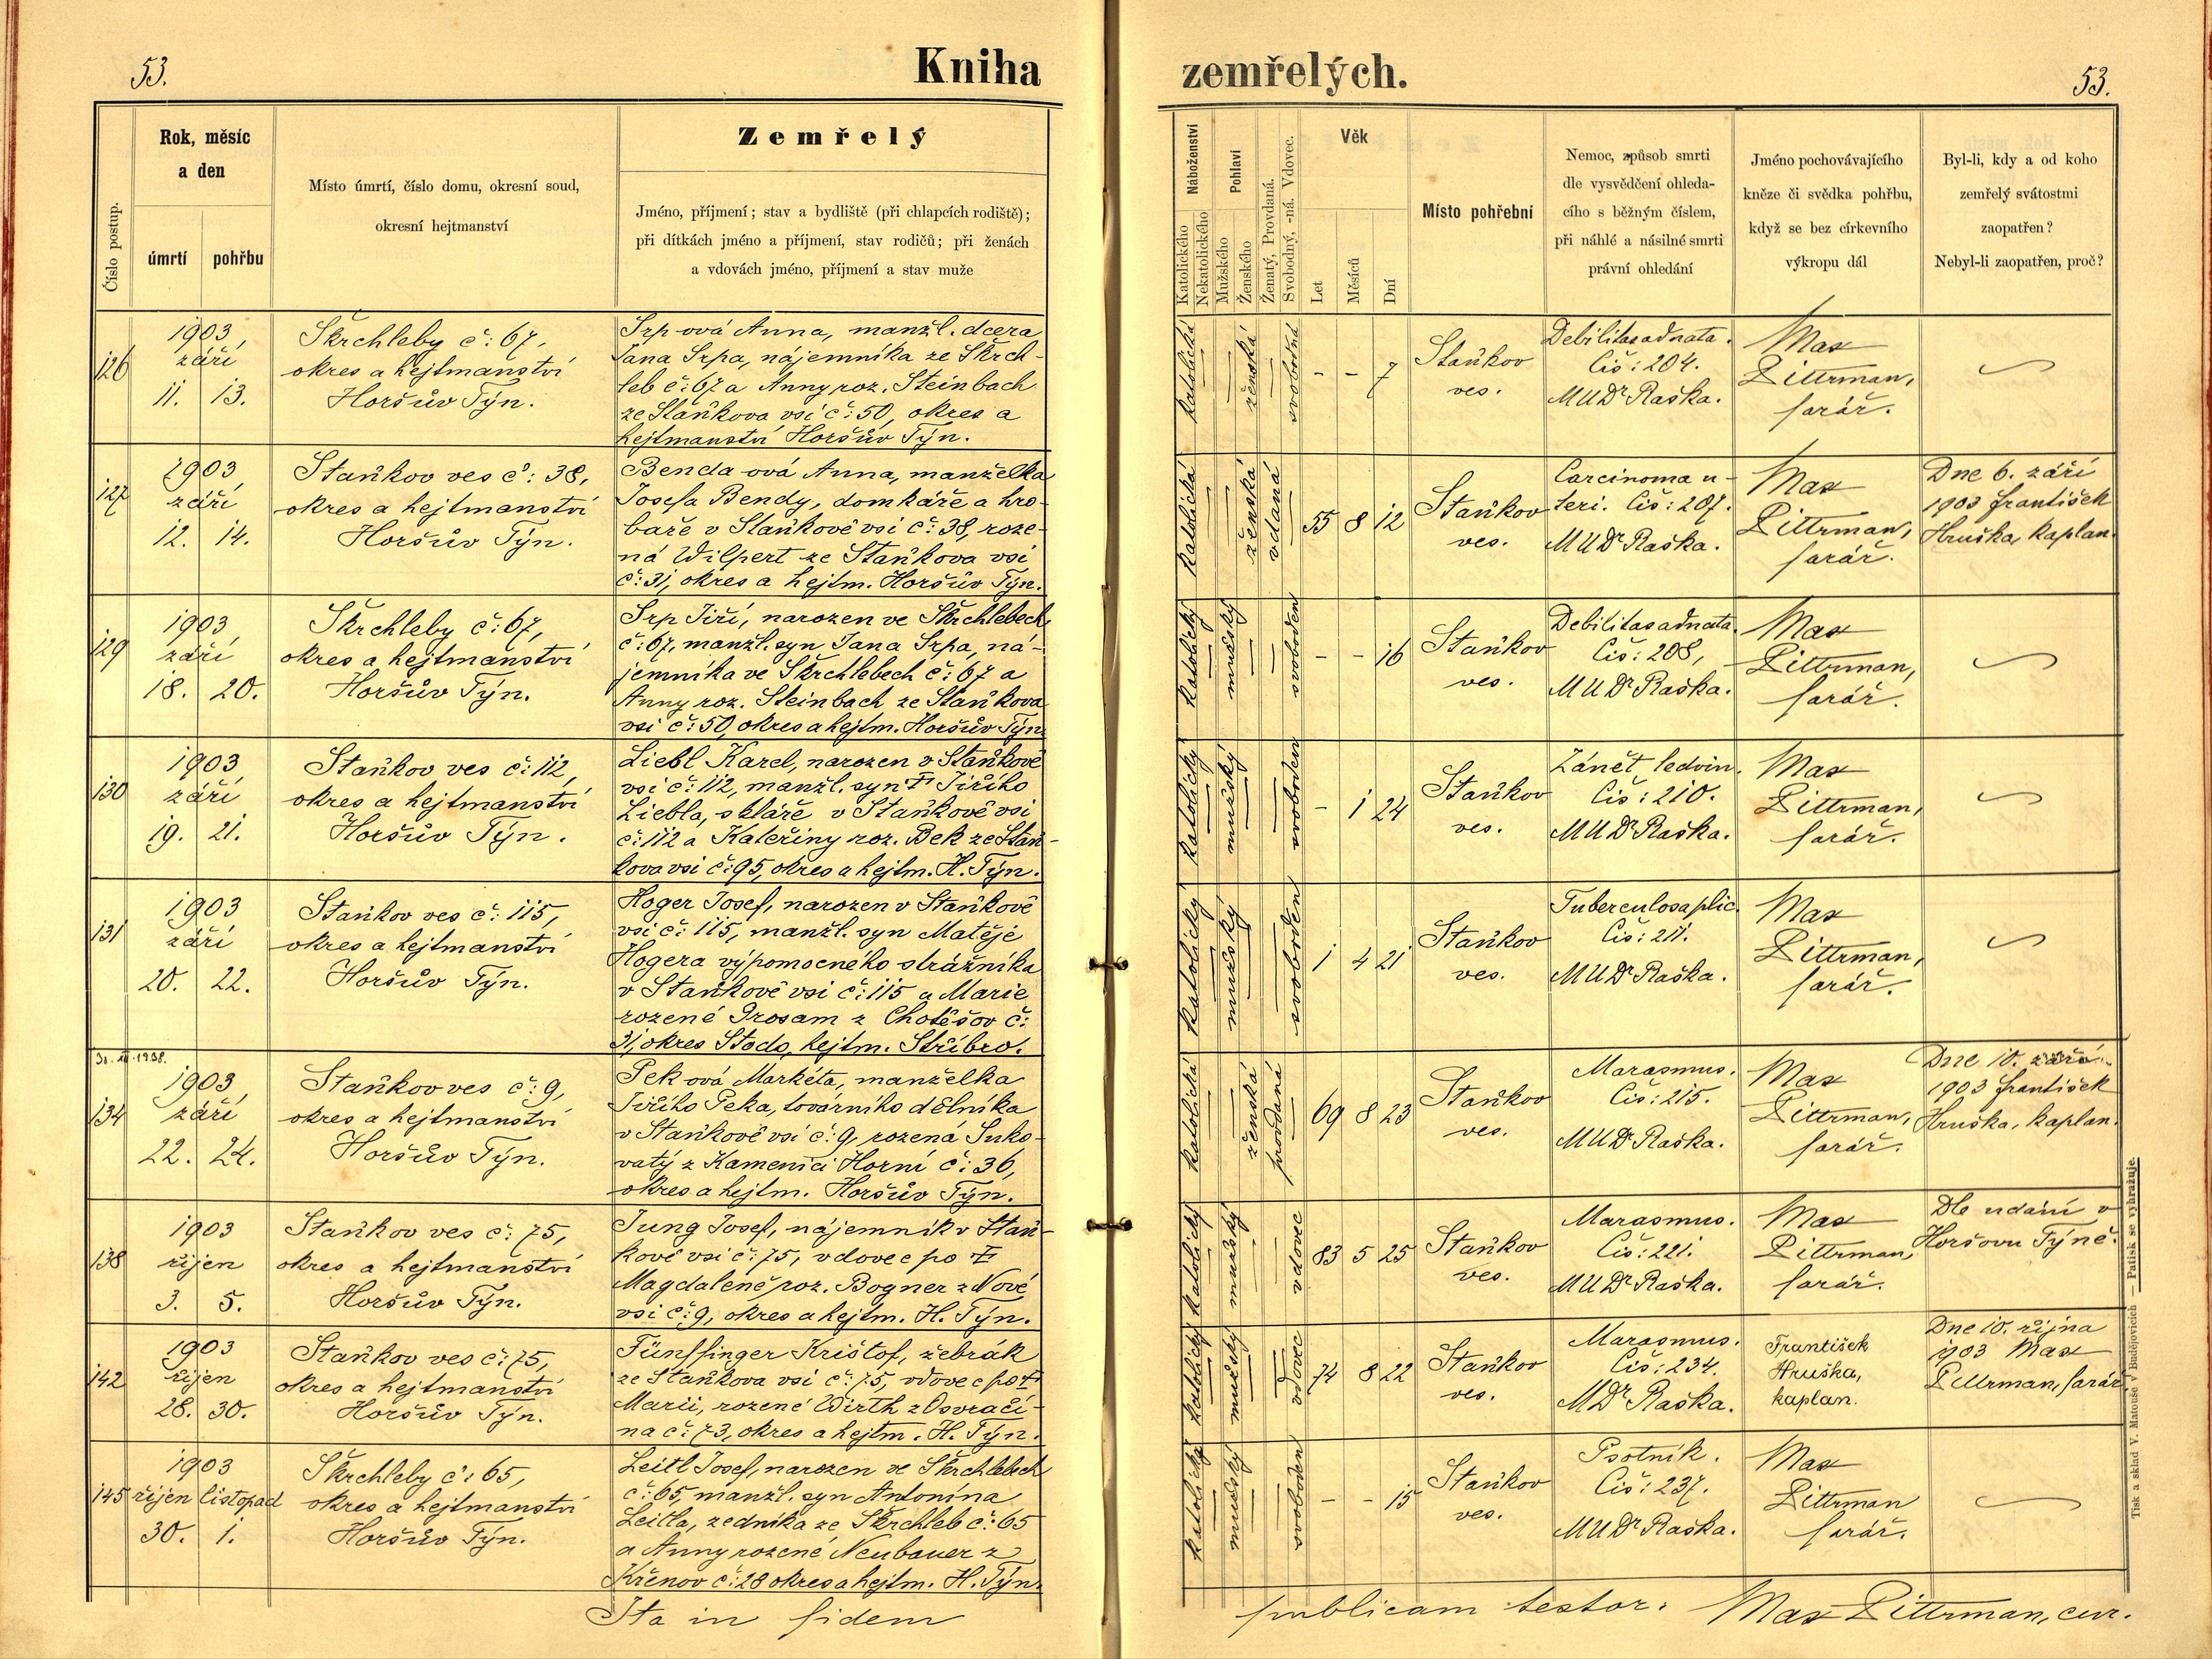 53.
Kniha
zemřelých.
53.
Číslo postup.
Rok, měsíc
a den
úmrtí
pohřbu
Místo úmrtí, číslo domu, okresní soud,
okresní hejtmanství
Zemřelý
Jméno, příjmení; stav a bydliště (při chlapcích rodiště);
při dítkách jméno a příjmení, stav rodičů; při ženách
a vdovách jméno, příjmení a stav muže
Náboženství
Katolického
Nekatolického
Pohlaví
Mužského
Ženského
Ženatý, Provdaná.
Svobodný, -ná. Vdovec.
Věk
Let
Měsíců
Dní
Místo pohřební
Nemoc, způsob smrti
dle vysvědčení ohleda-
cího s běžným číslem,
při náhlé a násilné smrti
právní ohledání
Jméno pochovávajícího
kněze či svědka pohřbu,
když se bez církevního
výkropu dál
Byl-li, kdy a od koho
zemřelý svátostmi
zaopatřen?
Nebyl-li zaopatřen, proč?
126
1903,
září
11. 13.
Škrchleby č: 67,
okres a hejtmanství
Horšův Týn.
Srp-ová Anna, manžl. dcera
Jana Srpa, nájemníka ze Škrch-
leb č: 67 a Anny roz. Steinbach
ze Staňkova vsi č: 50, okres a
hejtmanství Horšův Týn.
katolická
ženská
svobodná
- - 7
Staňkov
ves.
Debilitas adnata.
Čís: 204.
MUDr Raška.
Max
Pittrman,
farář.
127
1903,
září
12. 14.
Staňkov ves č: 38,
okres a hejtmanství
Horšův Týn.
Benda-ová Anna, manželka
Josefa Bendy, domkáře a hro-
baře v Staňkově vsi č: 38, roze-
ná Wilpert ze Staňkova vsi
č: 31, okres a hejtm. Horšův Týn.
katolická
ženská
vdaná
55 8 12
Staňkov
ves.
Carcinoma u-
teri. Čís: 207.
MUDr Raška.
Max
Pittrman,
farář.
Dne 6. září
1903 František
Hruška, kaplan.
129
1903
září
18. 20.
Škrchleby č: 67,
okres a hejtmanství
Horšův Týn.
Srp Jiří, narozen ve Škrchlebech
č: 67, manžl. syn Jana Srpa, ná-
jemníka ve Škrchlebech č: 67 a
Anny roz. Steinbach ze Staňkova
vsi č: 50, okres a hejtm. Horšův Týn.
katolický
mužský
svoboden
- - 16
Staňkov
ves.
Debilitas adnata.
Čís: 208,
MUDr Raška.
Max
Pittrman,
farář.
130
1903
září
19. 21.
Staňkov ves č: 112,
okres a hejtmanství
Horšův Týn.
Liebl Karel, narozen v Staňkově
vsi č: 112, manžl. syn † Jiřího
Liebla, skláře v Staňkově vsi
č: 112 a Kateřiny roz. Bek ze Staň-
kova vsi č: 95, okres a hejtm. H. Týn.
katolický
mužský
svoboden
- 1 24
Staňkov
ves.
Zánět ledvin.
Čís: 210.
MUDr Raška.
Max
Pittrman,
farář.
131
1903
září
20. 22.
Staňkov ves č: 115,
okres a hejtmanství
Horšův Týn.
Hoger Josef, narozen v Staňkově
vsi č: 115, manžl. syn Matěje
Hogera výpomocného strážníka
v Staňkově vsi č: 115 a Marie
rozené Prosam z Chotěšov č:
31, okres Stodo, hejtm. Stříbro.
katolický
mužský
svoboden
1 4 21
Staňkov
ves.
Tuberculosa plic.
Čís: 211.
MUDr Raška.
Max
Pittrman,
farář.
134
1903
září
22. 24.
Staňkov ves č: 9,
okres a hejtmanství
Horšův Týn.
Pek-ová Markéta, manželka
Jiřího Peka, továrního dělníka
v Staňkově vsi č: 9, rozená Suko-
vatý z Kamenici Horní č: 36,
okres a hejtm. Horšův Týn.
katolická
ženská
provdaná
69 8 23
Staňkov
ves.
Marasmus.
Čís: 215.
MUDr Raška.
Max
Pittrman,
farář.
Dne 10. září
1903 František
Hruška, kaplan.
138
1903
říjen
3. 5.
Staňkov ves č: 75,
okres a hejtmanství
Horšův Týn.
Jung Josef, nájemník v Staň-
kově vsi č: 75, vdovec po †
Magdaleně roz. Bogner z Nové
vsi č: 9, okres a hejtm. H. Týn.
katolický
mužský
vdovec
83 5 25
Staňkov
ves.
Marasmus.
Čís: 221.
MUDr Raška.
Max
Pittrman,
farář.
Dle udání v
Horšovu Týně.
142
1903
říjen
28. 30.
Staňkov ves č: 75,
okres a hejtmanství
Horšův Týn.
Fünffinger Krištof, žebrák
ze Staňkova vsi č: 75, vdovec po †
Marii, rozené Wirth z Osvračí-
na č: 73, okres a hejtm. H. Týn.
katolický
mužský
vdovec
74 8 22
Staňkov
ves.
Marasmus.
Čís: 234.
MDr Raška.
František
Hruška,
kaplan.
Dne 10. října
1903 Max
Pittrman, farář
145
1903
říjen listopad
30. 1.
Škrchleby č: 65,
okres a hejtmanství
Horšův Týn.
Leitl Josef, narozen ve Škrchlebech
č: 65, manžl. syn Antonína
Leitla, zedníka ze Škrchleb č: 65
a Anny rozené Neubauer z
Křenov č: 28 okres a hejtm. H. Týn.
katolický
mužský
svoboden
- - 15
Staňkov
ves.
Psotník.
Čís: 237.
MUDr Raška.
Max
Pittrman
farář.
Ita in fidem
publicam testor: Max Pittrman, cur.
Tisk a sklad V. Matouše v Budějovicích — Patisk se vyhražuje.